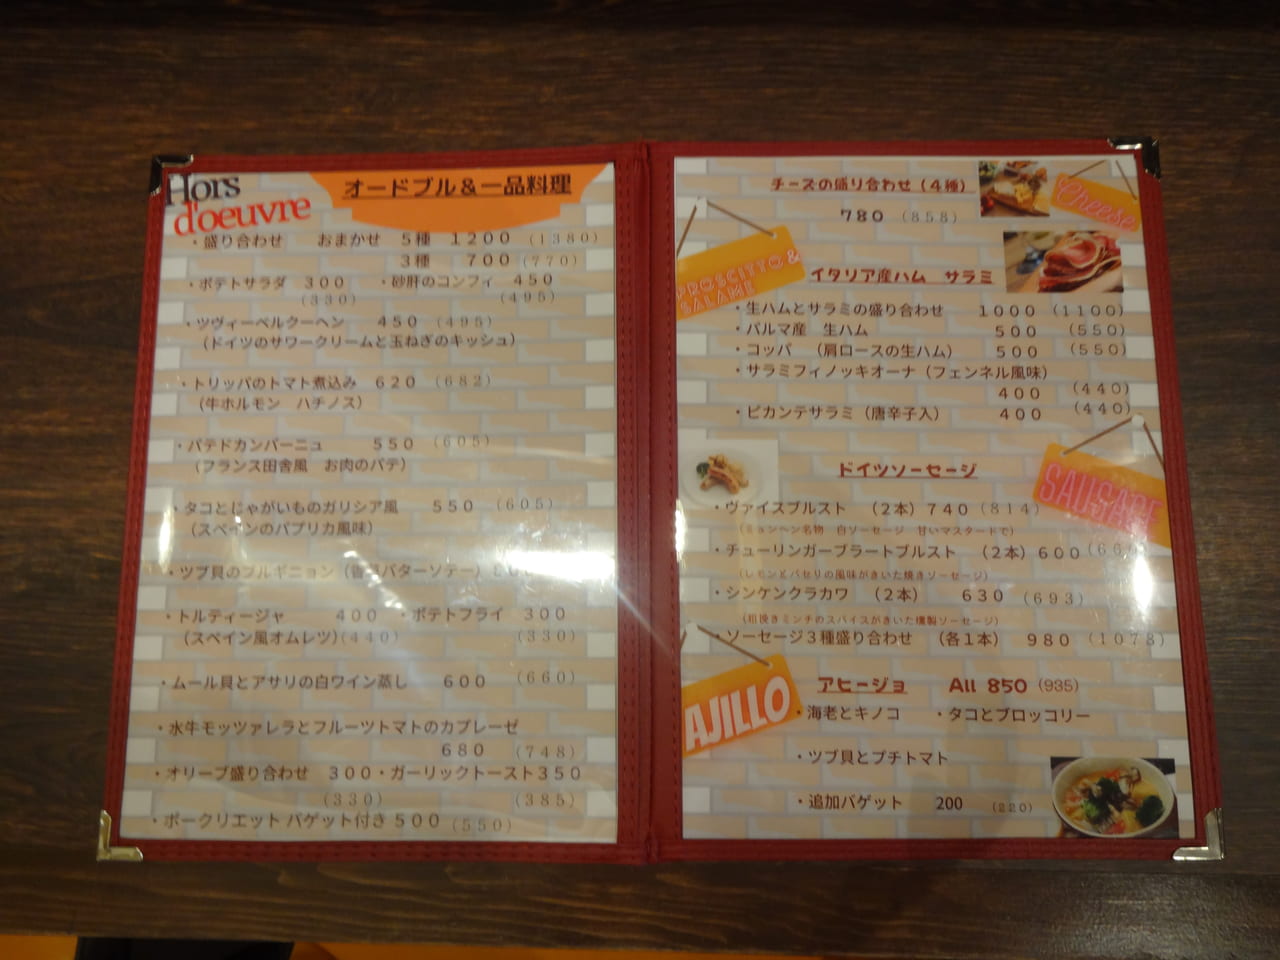 Hors
d'oeuvre
オードブル＆一品料理
・盛り合わせ　おまかせ　５種　１２００　（１３８０）
３種　７００（７７０）
・ポテトサラダ　３００　・砂肝のコンフィ　４５０
（３３０）　（４９５）
・ツヴィーベルクーヘン　４５０（４９５）
（ドイツのサワークリームと玉ねぎのキッシュ）
・トリッパのトマト煮込み　６２０（６８２）
（牛ホルモン　ハチノス）
・パテドカンパーニュ　５５０（６０５）
（フランス田舎風　お肉のパテ）
・タコとじゃがいものガリシア風　５５０（６０５）
（スペインのパプリカ風味）
・ツブ貝のブルギニョン（バターソテー）
・トルティージャ　４００　・ポテトフライ　３００
（スペイン風オムレツ）（４４０）　（３３０）
・ムール貝とアサリの白ワイン蒸し　６００（６６０）
・水牛モッツァレラとフルーツトマトのカプレーゼ
６８０（７４８）
・オリーブ盛り合わせ　３００・ガーリックトースト３５０
（３３０）　（３８５）
・ポークリエット バゲット付き５００（５５０）
チーズの盛り合わせ（４種）
Cheese
７８０（８５８）
PROSCITTO &
SALAME
イタリア産ハム　サラミ
・生ハムとサラミの盛り合わせ　１０００（１１００）
・パルマ産　生ハム　５００（５５０）
・コッパ　（肩ロースの生ハム）　５００（５５０）
・サラミフィノッキオーナ（フェンネル風味）
４００（４４０）
・ピカンテサラミ（唐辛子入）　４００（４４０）
ドイツソーセージ
SAUSAGE
・ヴァイスブルスト　（２本）７４０（８１４）
（ミュンヘン名物　白ソーセージ　甘いマスタードで）
・チューリンガーブラートブルスト　（２本）６００
（レモンとパセリの風味がきいた焼きソーセージ）
・シンケンクラカワ　（２本）　６３０（６９３）
（粗挽きミンチのスパイスがきいた燻製ソーセージ）
・ソーセージ３種盛り合わせ　（各１本）　９８０（１０７８）
AJILLO
アヒージョ　All 850（935）
・海老とキノコ　・タコとブロッコリー
・ツブ貝とプチトマト
・追加バゲット　200（220）